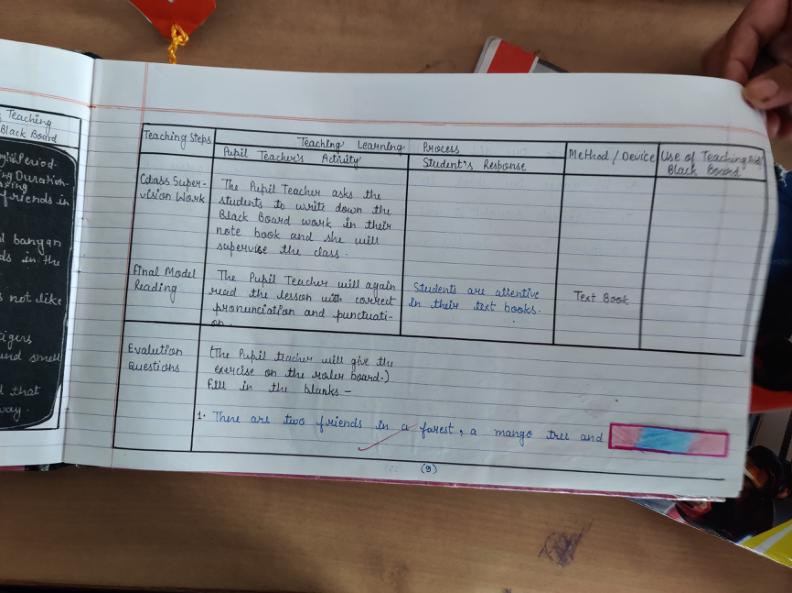 Teaching
Black Board
Period-
Duration-
friends in
bangan
ds in the
s not like
igers
und smell
d that
way.
Teaching Steps
Teaching Learning Process
Method / Device
Use of Teaching Aid/
Black Board
Pupil Teacher's Activity
Student's Response
Class Super-
vision Work
The Pupil Teacher asks the
students to write down the
Black Board work in their
note book and she will
supervise the class.
Final Model
Reading
The Pupil Teacher will again
read the lesson with correct
pronunciation and punctuati-
on.
Students are attentive
in their text books.
Text Book
Evalution
Questions
(The Pupil teacher will give the
exercise on the roler board.)
Fill in the blanks -
1. There are two friends in a forest, a mango tree and
(9)